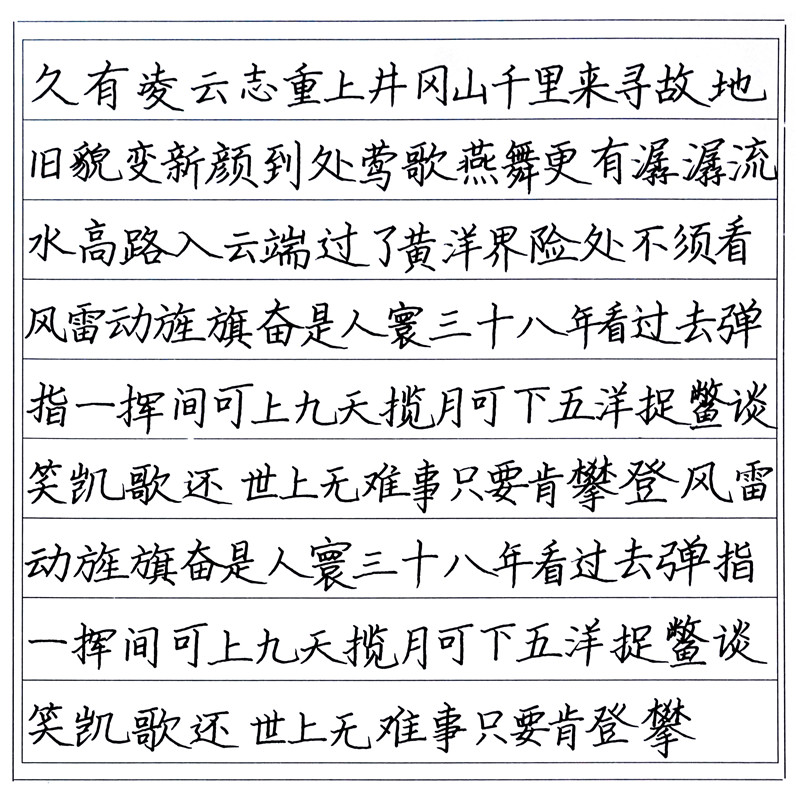 久有凌云志重上井冈山千里来寻故地
旧貌变新颜到处莺歌燕舞更有潺潺流
水高路入云端过了黄洋界险处不须看
风雷动旌旗奋是人寰三十八年看过去弹
指一挥间可上九天揽月可下五洋捉鳖谈
笑凯歌还世上无难事只要肯攀登风雷
动旌旗奋是人寰三十八年看过去弹指
一挥间可上九天揽月可下五洋捉鳖谈
笑凯歌还世上无难事只要肯登攀